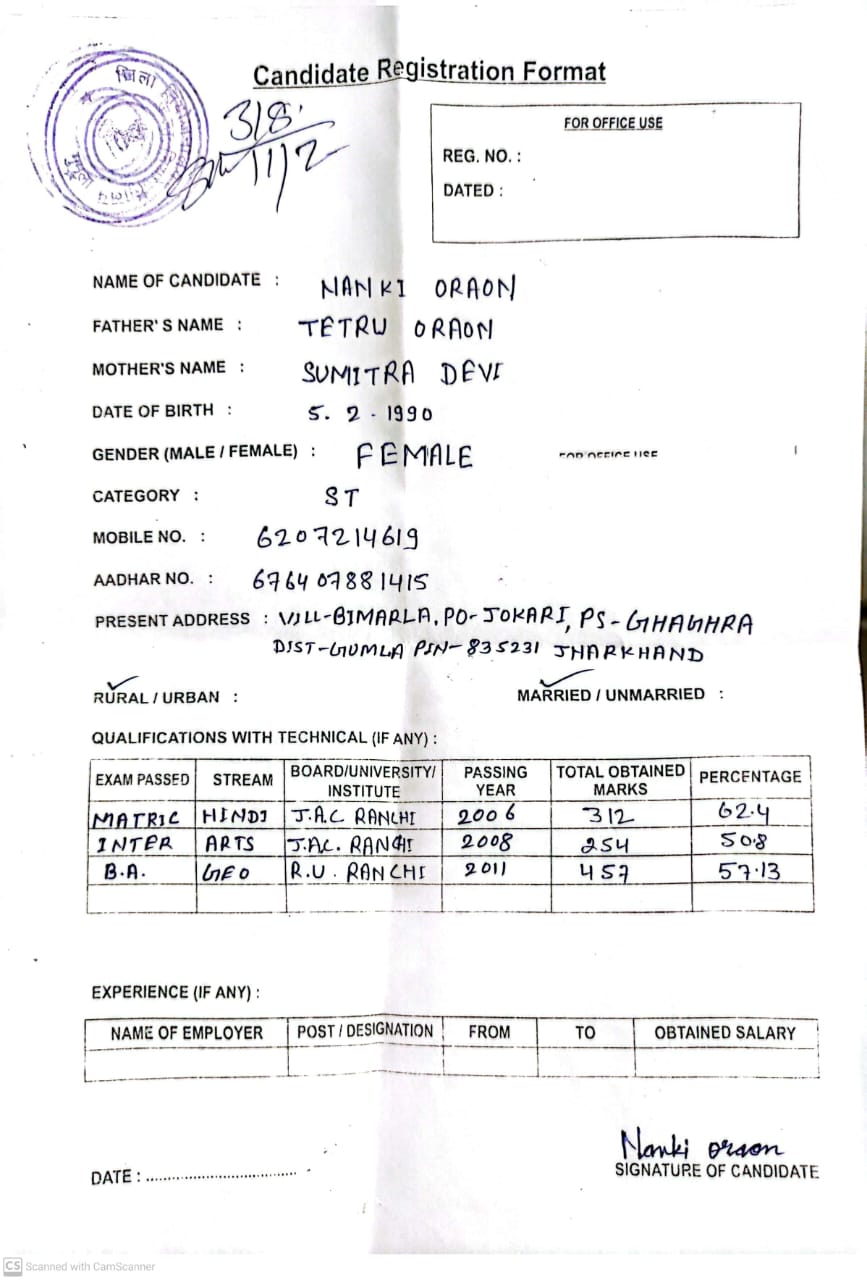 Candidate Registration Format
जिला
318
11/2
FOR OFFICE USE
REG. NO. :
DATED :
NAME OF CANDIDATE : NANKI ORAON
FATHER'S NAME : TETRU ORAON
MOTHER'S NAME : SUMITRA DEVI
DATE OF BIRTH : 5. 2 - 1990
GENDER (MALE / FEMALE) : FEMALE FOR OFFICE USE
CATEGORY : ST
MOBILE NO. : 6207214619
AADHAR NO. : 676407881415
PRESENT ADDRESS : VILL-BIMARLA, PO-JOKARI, PS-GHAGHRA
DIST-GUMLA PIN-835231 JHARKHAND
RURAL / URBAN : MARRIED / UNMARRIED :
QUALIFICATIONS WITH TECHNICAL (IF ANY) :
EXAM PASSED STREAM BOARD/UNIVERSITY/ INSTITUTE PASSING YEAR TOTAL OBTAINED MARKS PERCENTAGE
MATRIC HINDI J.A.C RANCHI 2006 312 62.4
INTER ARTS J.AC. RANCHI 2008 254 50.8
B.A. GEO R.U. RANCHI 2011 457 57.13
EXPERIENCE (IF ANY) :
NAME OF EMPLOYER POST / DESIGNATION FROM TO OBTAINED SALARY
Nanki oraon
DATE : ........................ SIGNATURE OF CANDIDATE
CS Scanned with CamScanner